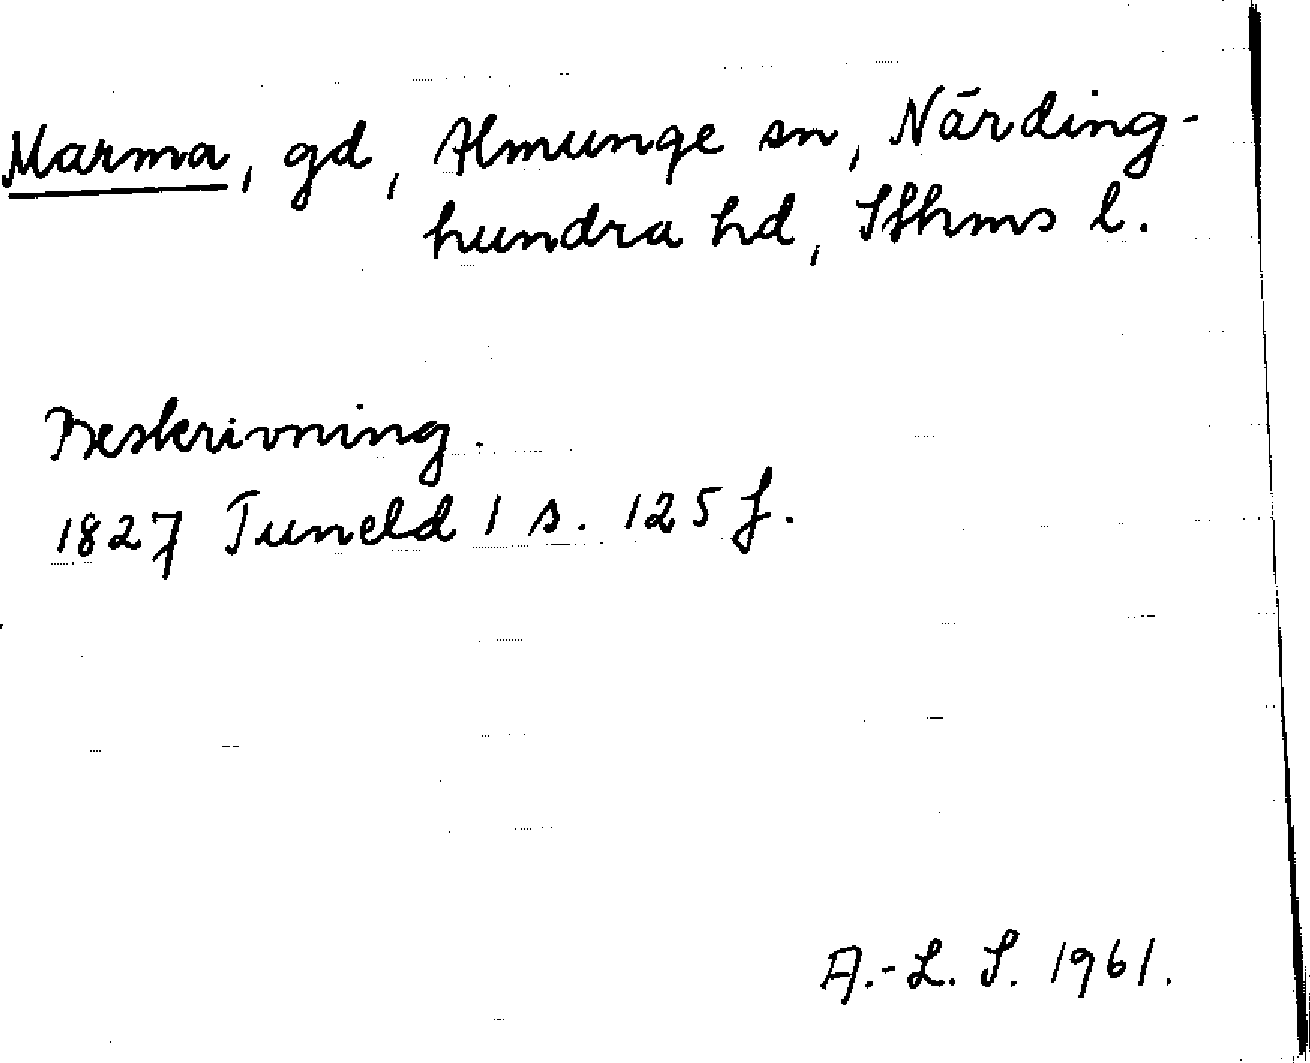 Marma, gd, Almunge sn, Närding-
hundra hd, Sthms l.
Beskrivning.
1827 Tuneld 1 s. 125 f.
A.-L. S. 1961.